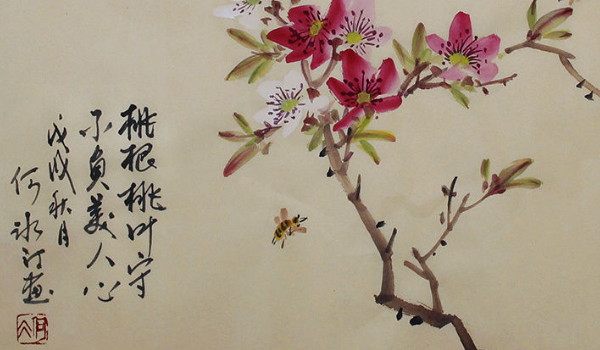 桃根桃叶守
不負美人心
戊戌秋月
何冰汀画